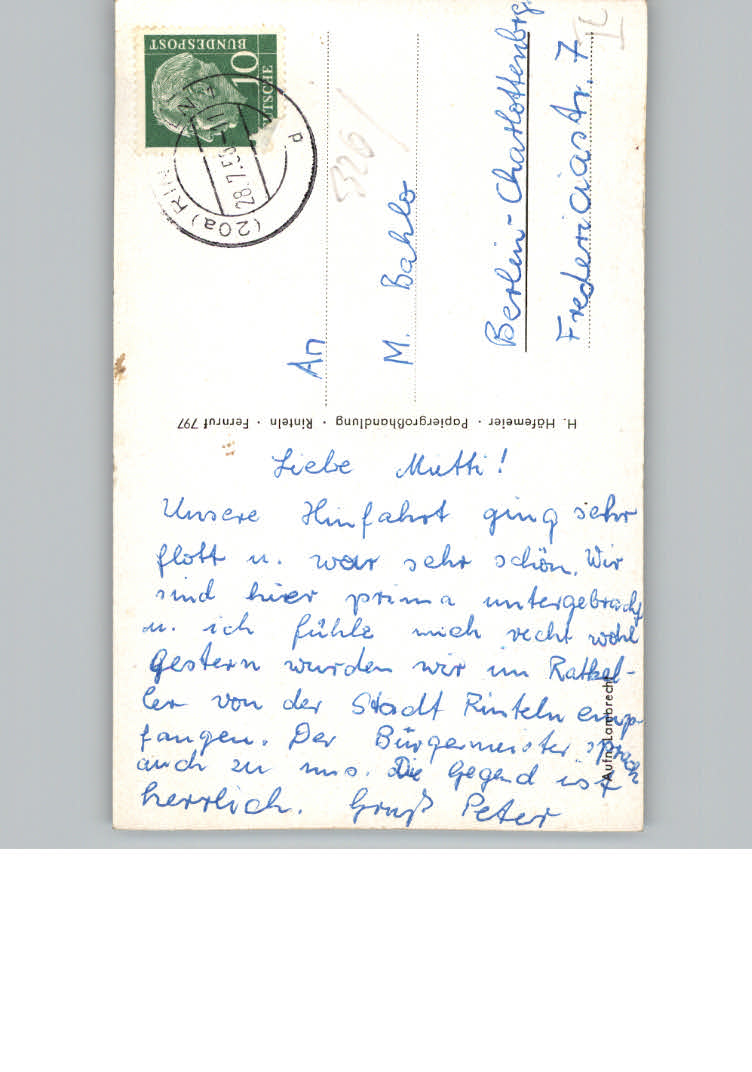 DEUTSCHE
BUNDESPOST
10
(20a)
28.7.58
d
An
M. Bahlo
Berlin-Charlottenbrg.
Fredericiastr. 7
H. Häfemeier · Papiergroßhandlung · Rinteln · Fernruf 797
Liebe Mutti!
Unsere Hinfahrt ging sehr
flott u. war sehr schön. Wir
sind hier prima untergebracht
u. ich fühle mich recht wohl
Gestern wurden wir im Ratskel-
ler von der Stadt Rinteln emp-
fangen. Der Bürgermeister sprach
auch zu uns. Die Gegend ist
herrlich. Gruß Peter
Aufn. Lambrecht